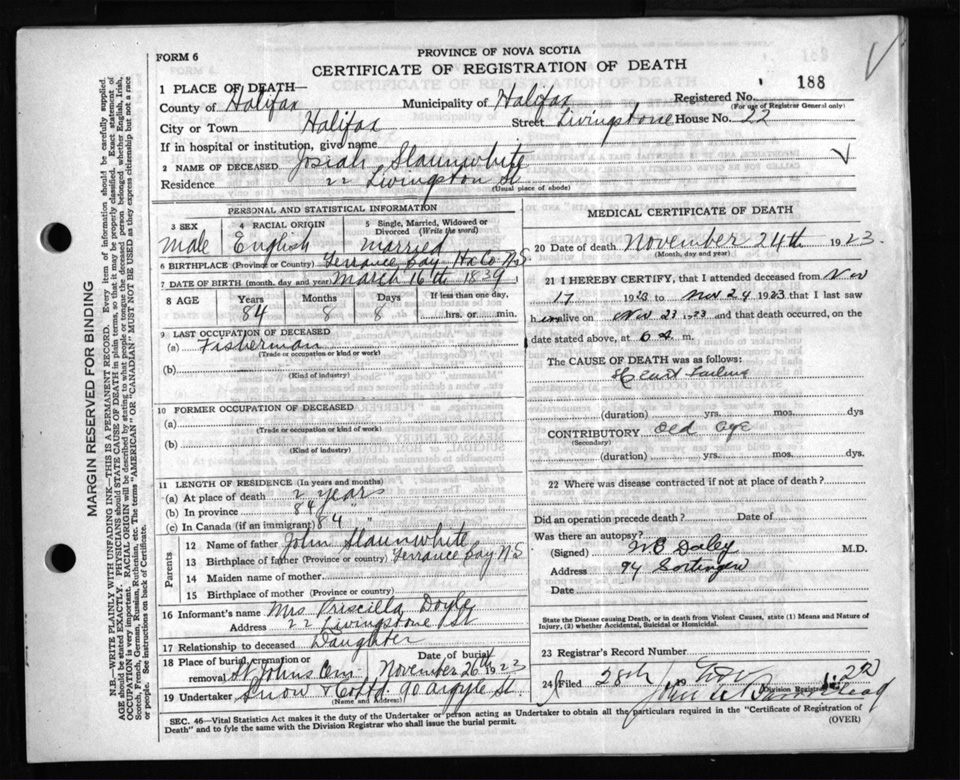 FORM 6
PROVINCE OF NOVA SCOTIA
CERTIFICATE OF REGISTRATION OF DEATH
188
1 PLACE OF DEATH—
County of Halifax Municipality of Halifax Registered No.
(For use of Registrar General only)
City or Town Halifax Street Livingstone House No. 22
If in hospital or institution, give name
2 NAME OF DECEASED Josiah Slaunwhite
Residence 22 Livingston St
(Usual place of abode)
PERSONAL AND STATISTICAL INFORMATION
3 SEX 4 RACIAL ORIGIN 5 Single, Married, Widowed or Divorced (Write the word)
Male English Married
6 BIRTHPLACE (Province or Country) Terrance Bay Hx Co N.S
7 DATE OF BIRTH (month, day and year) March 16th 1839
8 AGE Years Months Days If less than one day,
84 8 8 hrs. or min.
9 LAST OCCUPATION OF DECEASED
(a) Fisherman
(Trade or occupation or kind of work)
(b)
(Kind of industry)
10 FORMER OCCUPATION OF DECEASED
(a)
(Trade or occupation or kind of work)
(b)
(Kind of industry)
11 LENGTH OF RESIDENCE (In years and months)
(a) At place of death 2 years
(b) In province 84 "
(c) In Canada (if an immigrant) 84 "
Parents
12 Name of father John Slaunwhite
13 Birthplace of father (Province or country) Terrance Bay N S
14 Maiden name of mother
15 Birthplace of mother (Province or country)
16 Informant's name Mrs Priscilla Doyle
Address 22 Livingstone St
17 Relationship to deceased Daughter
18 Place of burial, cremation or removal St Johns Cem Date of burial November 26th 1923
19 Undertaker Snow & Co Ltd 90 Argyle St.
(Name and Address)
MEDICAL CERTIFICATE OF DEATH
20 Date of death November 24th 1923.
(Month, day and year)
21 I HEREBY CERTIFY, that I attended deceased from Nov
17 1923 to Nov 24 1923 that I last saw
him alive on Nov 23 1923 and that death occurred, on
date stated above, at 6 a. m.
The CAUSE OF DEATH was as follows:
Heart Failure
(duration) yrs. mos. dys
CONTRIBUTORY Old Age
(Secondary)
(duration) yrs. mos. dys.
22 Where was disease contracted if not at place of death?
Did an operation precede death? Date of
Was there an autopsy?
(Signed) Daley M.D.
Address 94
Date
State the Disease causing Death, or in death from Violent Causes, state (1) Means and Nature of Injury, (2) whether Accidental, Suicidal or Homicidal.
23 Registrar's Record Number
24 Filed 28th 19
Division Registrar
SEC. 46—Vital Statistics Act makes it the duty of the Undertaker or person acting as Undertaker to obtain all the particulars required in the "Certificate of Registration of
Death" and to fyle the same with the Division Registrar who shall issue the burial permit. (OVER)
MARGIN RESERVED FOR BINDING
N.B.—WRITE PLAINLY WITH UNFADING INK—THIS IS A PERMANENT RECORD. Every item of information should be carefully supplied.
AGE should be stated EXACTLY. PHYSICIANS should STATE CAUSE OF DEATH in plain terms, so that it may be properly classified. Exact statement of
OCCUPATION is very important. RACIAL ORIGIN will be described by stating to what people or tongue the deceased person belonged whether English, Irish,
Scotch, French, German, Russian, Ruthenian, etc. The terms "AMERICAN" or "CANADIAN" MUST NOT BE USED as they express citizenship but not a race
or people. See instructions on back of Certificate.